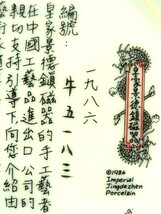 一九八六
編號：牛五一八三
皇家景德鎮磁器的手工藝者
在中國工藝品進出口公司的
親切支持引導下向您介紹由
©1986
Imperial
Jingdezhen
Porcelain